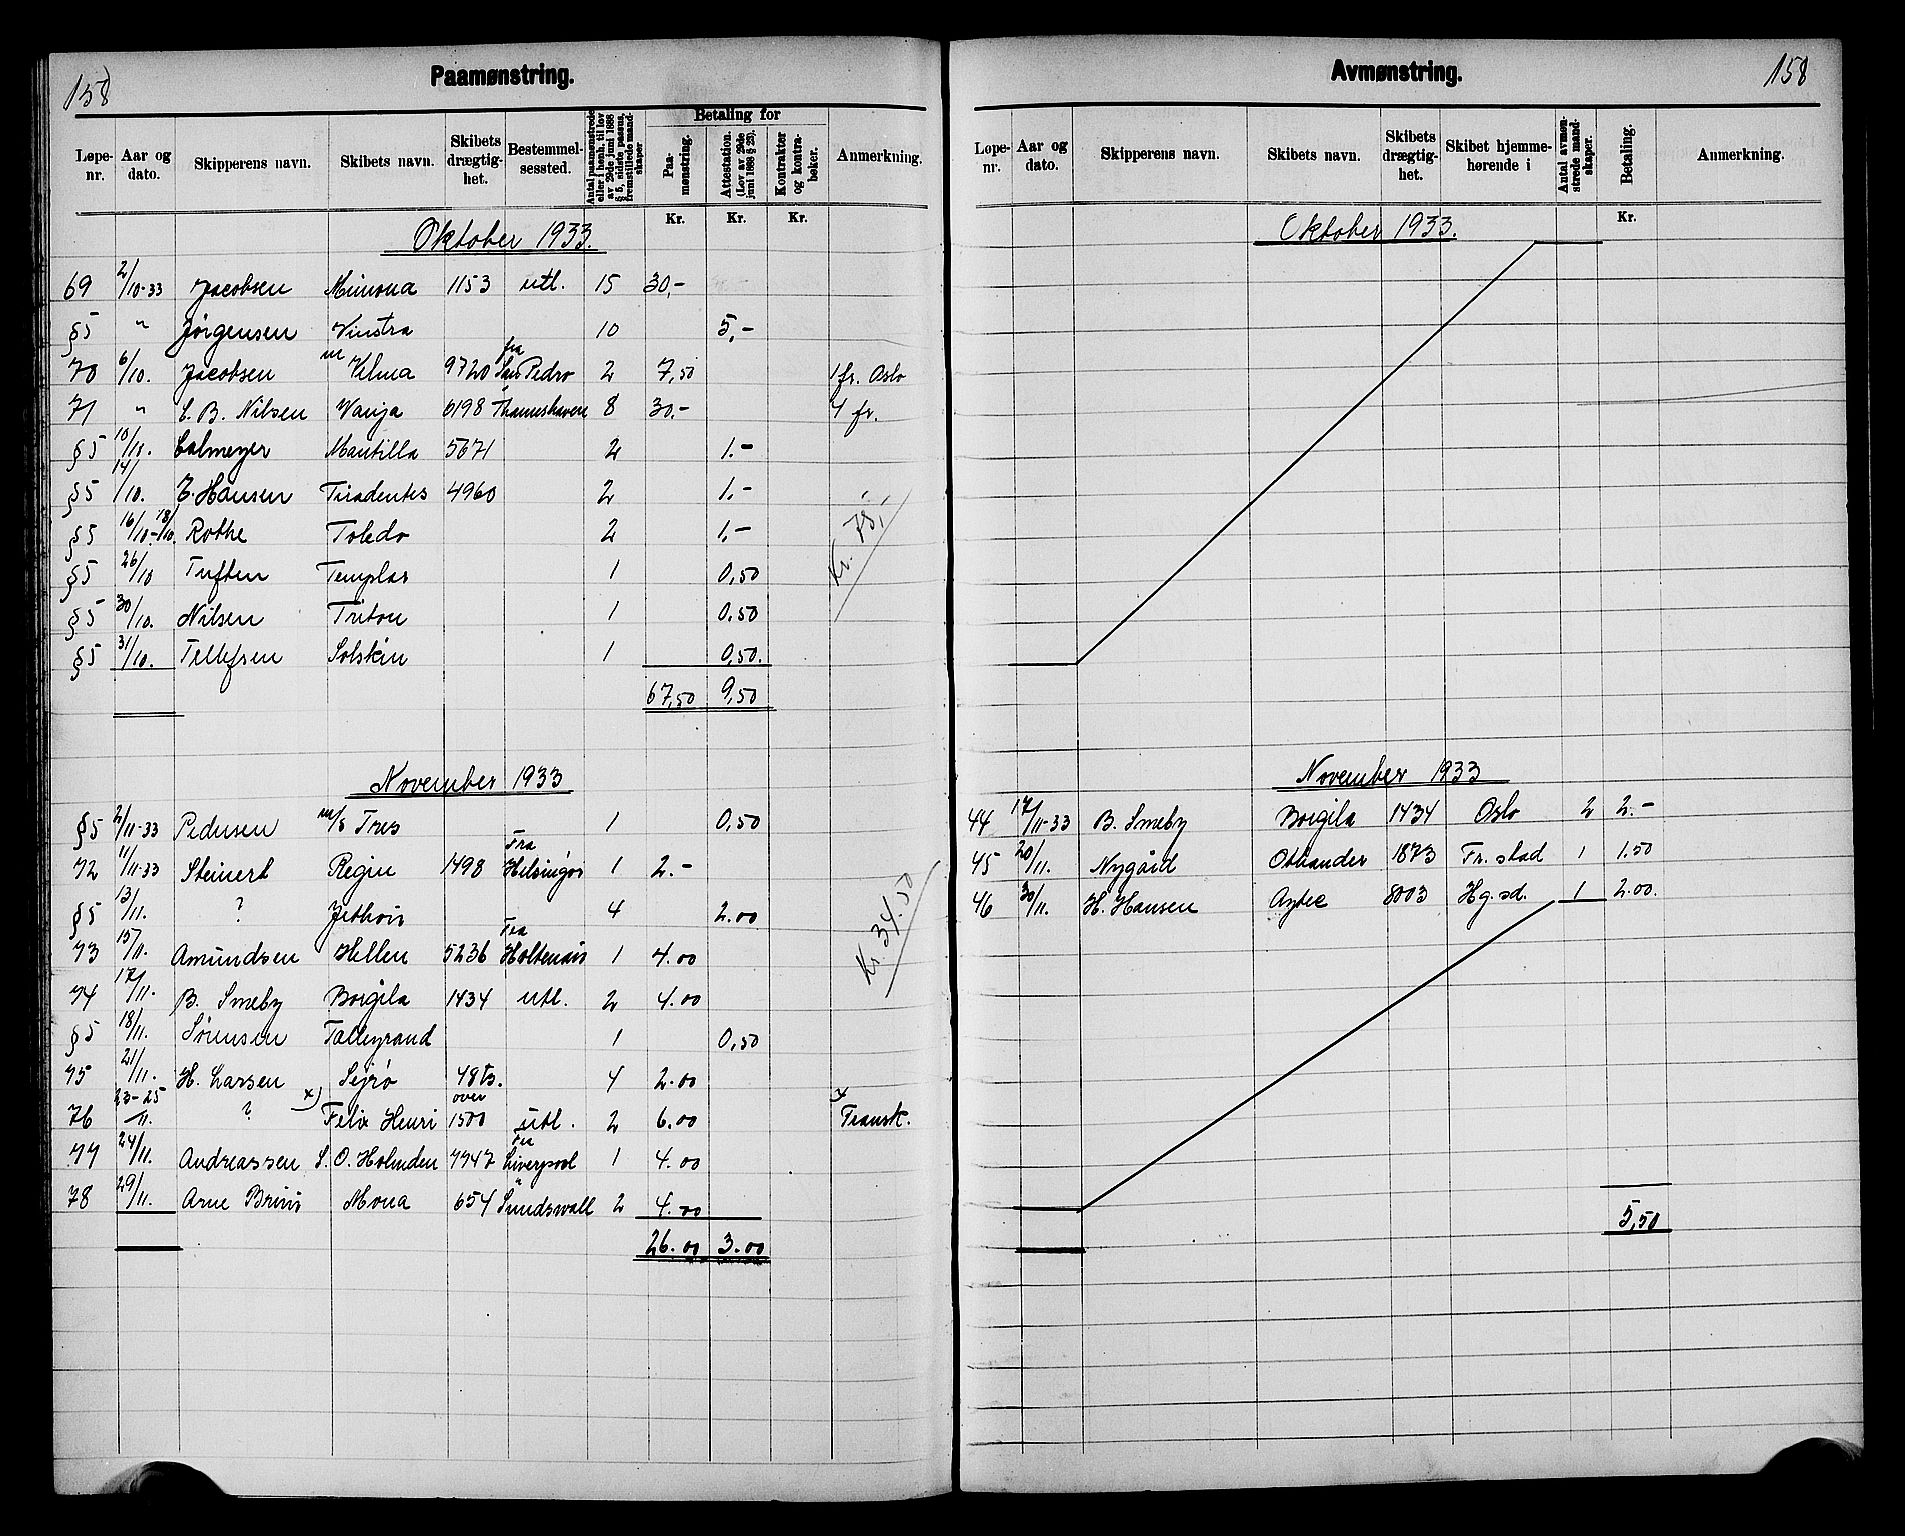 158
Paamønstring.
Løpe-nr. Aar og dato. Skipperens navn. Skibets navn. Skibets drægtig-het. Bestemmel-sessted. Antal paamønstrede eller i henh. til lov av 29de juni 1888 § 5, sidste passus, fremstillede mand-skaper Betaling for Paa-mønstring. Attestation. (Lov av 29de juni 1888 § 23). Kontrakter og kontra-bøker. Anmerkning.
Kr. Kr. Kr.
Oktober 1933.
69 2/10-33 Jacobsen Mimona 1153 utl. 15 30,-
§5 " Jørgensen Vinstra 10 5,-
70 6/10. Jacobsen m Velma 9720 fra San Pedro 2 7,50 1 fr. Oslo
71 " C. B. Nilsen Vanja 6198 Thameshaven 8 30.- 4 fr.
§5 10/10. Calmeyer Mantilla 5671 2 1.-
§5 14/10. E. Hansen Tiradentes 4960 2 1.-
§5 16/10-18/10. Rothe Toledo 2 1,-
§5 26/10 Tuften Templar 1 0,50
§5 30/10. Nilsen Triton 1 0.50
§5 31/10. Tellefsen Solskin 1 0,50.
Kr. 75,-
67,50 9,50
November 1933
§5 2/11-33 Pedersen m/s Tres 1 0,50
72 11/11-33 Steinert Regin 1498 Fra Helsingør 1 2.-
§5 13/11. ? Jethois 4 2.00
73 15/11. Amundsen Hellen 5236 Fra Holtenau 1 4.00
74 17/11. B. Smeby Borgila 1434 utl. 2 4.00
§5 18/11. Sørensen Talleyrand 1 0,50
75 21/11. H. Larsen Sejrø 48 4 2.00
76 23-25/11. ? x) Felix Henri over 1500 utl. 2 6.00 x Fransk.
77 24/11. Andreassen S. O. Holmden 7747 Fra Liverpool 1 4.00
78 29/11. Arne Mona 654 " Sundswall 2 4.00
Kr. 34.50
26.00 3.00
158
Avmønstring.
Løpe-nr. Aar og dato. Skipperens navn. Skibets navn. Skibets drægtig-het. Skibet hjemme-hørende i Antal avmøn-strede mand-skaper. Betaling. Anmerkning.
Kr.
Oktober 1933.
November 1933
44 17/11-33 B. Smeby Borgila 1434 Oslo 2 2.-
45 20/11. Nygård 1873 Fr. stad 1 1.50
46 30/11. H. Hansen Aztec 8003 Hg.sd. 1 2.00.
5,50